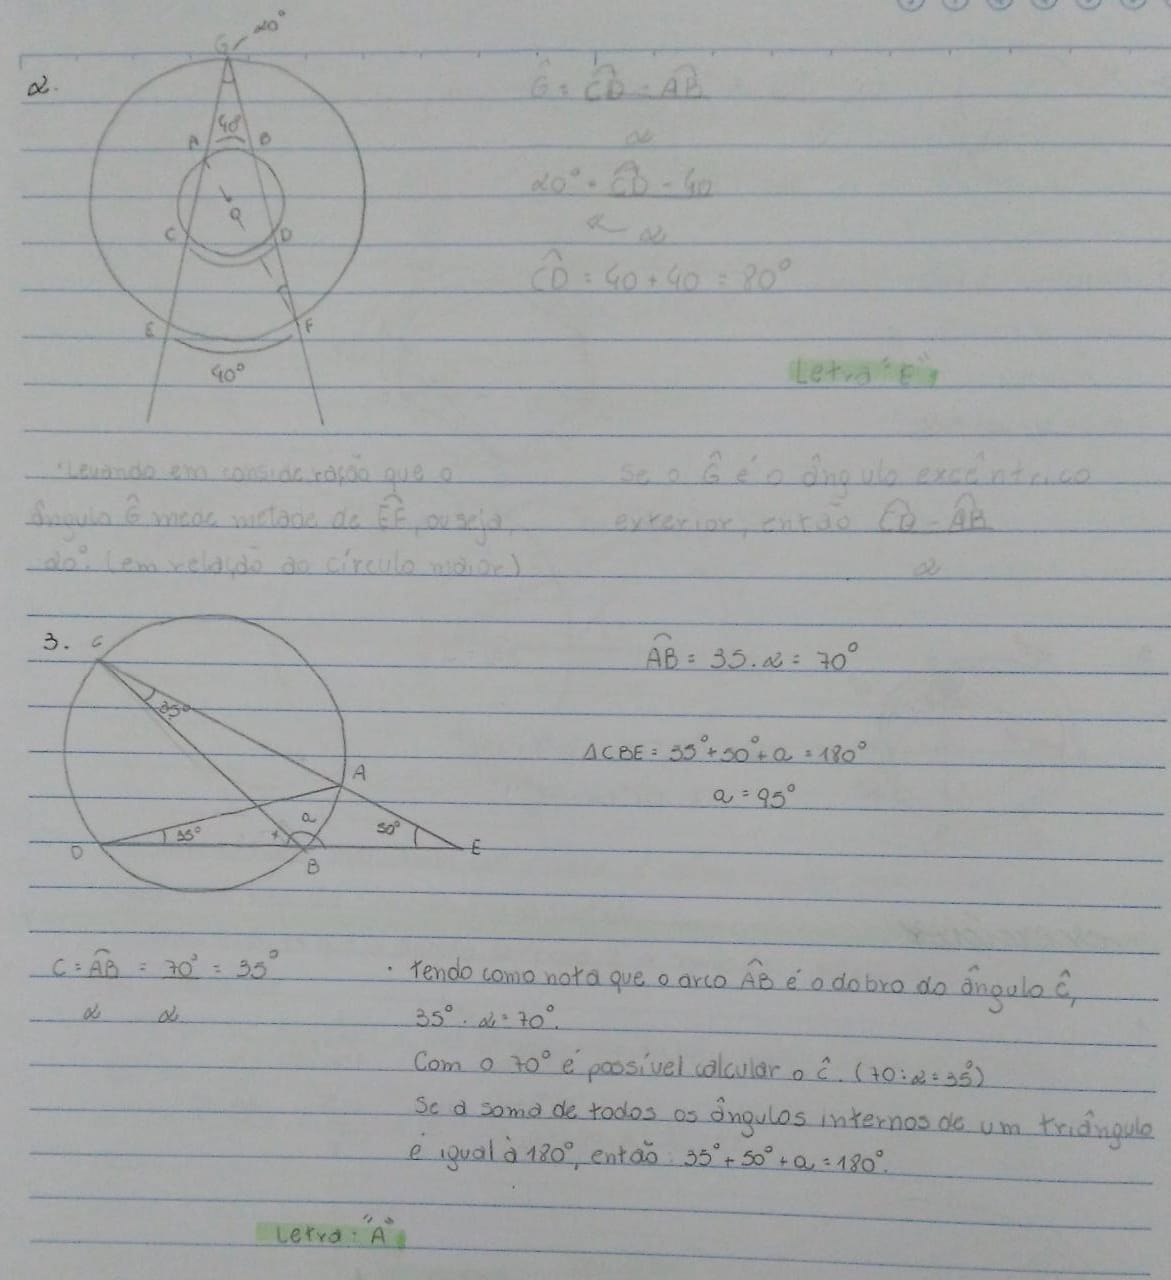 2.
G 20°
40
A B
Q
C D
E F
40°
Ĝ = CD - AB
2
20° = CD - 40
2
CD = 40 + 40 = 80°
Letra "E"
·Levando em consideração que o
ângulo Ĝ mede metade de EF, ou seja,
20°. (em relação ao círculo maior)
Se o Ĝ é o ângulo excêntrico
exterior, então CD - AB
2
3.
C
35°
A
a
D 35° 50° E
B
AB = 35 . 2 = 70°
ΔCBE = 35° + 50° + a = 180°
a = 95°
C = AB = 70° = 35°
2 2
· Tendo como nota que o arco AB é o dobro do ângulo Ĉ,
35° . 2 = 70°.
Com o 70° é possível calcular o Ĉ. (70:2=35°)
Se a soma de todos os ângulos internos de um triângulo
é igual à 180°, então: 35° + 50° + a = 180°.
Letra: "A"